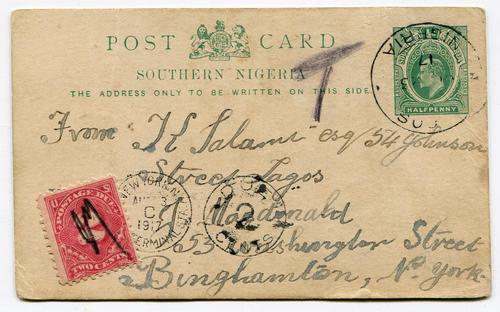 POST CARD
SOUTHERN NIGERIA
THE ADDRESS ONLY TO BE WRITTEN ON THIS SIDE.
HALFPENNY
T
From K Salami esq 54 Johnson
Street Lagos
U S
POSTAGE DUE
TWO CENTS
NEW YORK, N.Y.
AUG
C
1917
TERMINAL
DUE
2
CENTS
Macdonald
53 Washington Street
Binghamton, N. York.